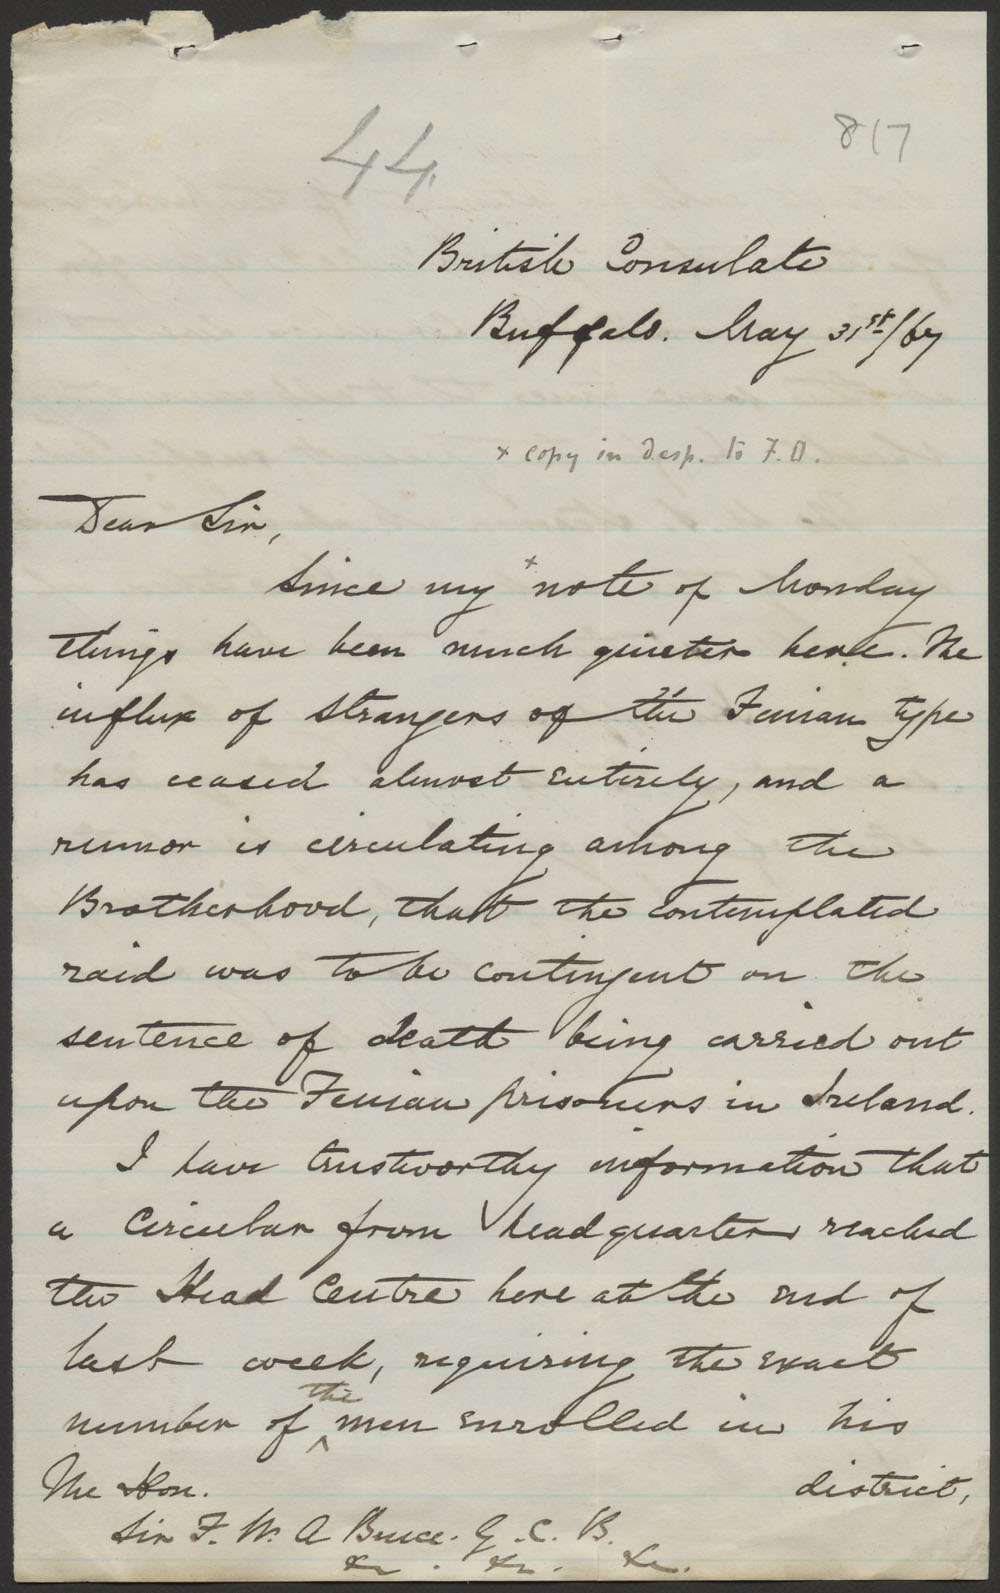 44
817
British Consulate
Buffalo. May 31st/67
x copy in Desp. to F.O.
Dear Sir,
Since my x note of Monday
things have been much quieter here. The
influx of strangers of the Fenian type
has ceased almost entirely, and a
rumor is circulating among the
Brotherhood, that the contemplated
raid was to be contingent on the
sentence of death being carried out
upon the Fenian prisoners in Ireland.
I have trustworthy information that
a Circular from headquarters reached
the Head Centre here at the end of
last week, requiring the exact
number of the men enrolled in his
district,
The Hon.
Sir F. W. A Bruce. G. C. B.
&c. &c. &c.